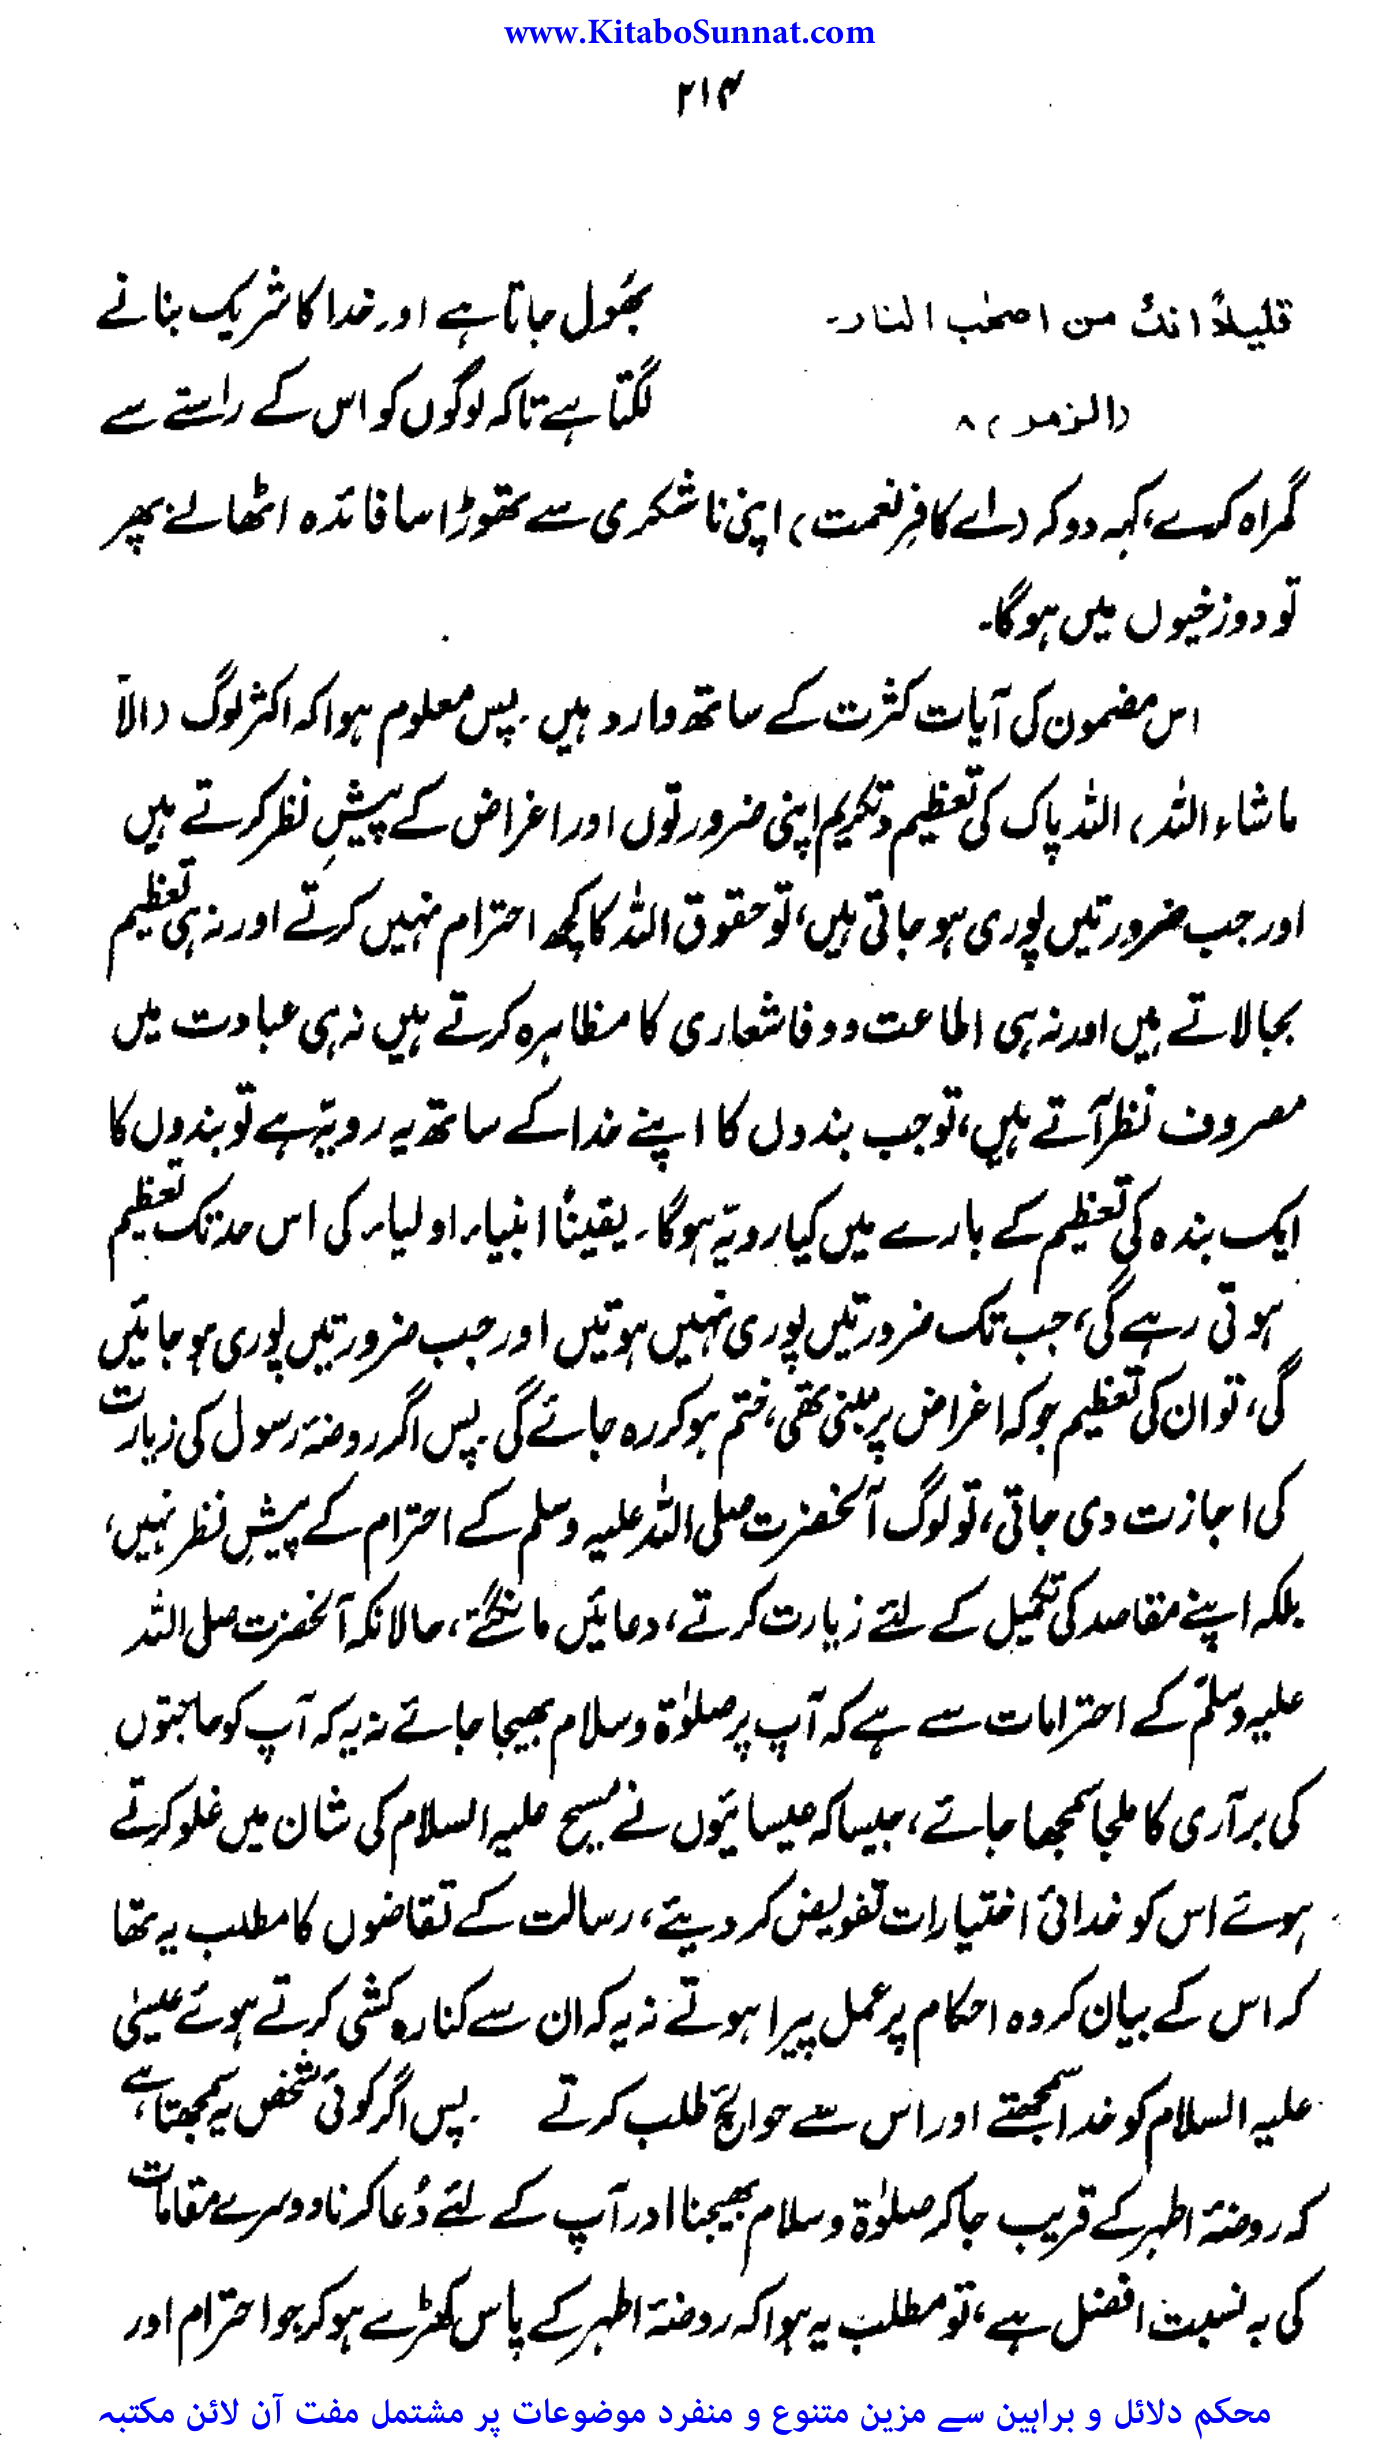 www.KitaboSunnat.com
۲۱۴
قليلاً انك من اصحٰب النار۔ بھُول جاتا ہے اور خدا کا شریک بنانے
(الزمر، ۸ لگتا ہے تاکہ لوگوں کو اس کے راستے سے
گمراہ کرے، کہہ دو کہ (اے کافرِ نعمت) اپنی ناشکری سے تھوڑا سا فائدہ اٹھالے پھر
تو دوزخیوں میں ہوگا۔
اس مضمون کی آیات کثرت کے ساتھ وارد ہیں۔ پس معلوم ہوا کہ اکثر لوگ (الاّ
ماشاء اللہ) اللہ پاک کی تعظیم و تکریم اپنی ضرورتوں اور اغراض کے پیشِ نظر کرتے ہیں
اور جب ضرورتیں پوری ہو جاتی ہیں، تو حقوق اللہ کا کچھ احترام نہیں کرتے اور نہ ہی تعظیم
بجا لاتے ہیں اور نہ ہی اطاعت و وفا شعاری کا مظاہرہ کرتے ہیں نہ ہی عبادت میں
مصروف نظر آتے ہیں، تو جب بندوں کا اپنے خدا کے ساتھ یہ رویّہ ہے تو بندوں کا
ایک بندہ کی تعظیم کے بارے میں کیا رویّہ ہوگا۔ یقیناً انبیاء اولیاء کی اس حد تک تعظیم
ہوتی رہے گی، جب تک ضرورتیں پوری نہیں ہوتیں اور جب ضرورتیں پوری ہو جائیں
گی، تو ان کی تعظیم جو کہ اغراض پر مبنی تھی، ختم ہو کر رہ جائے گی۔ پس اگر روضۂ رسول کی زیارت
کی اجازت دی جاتی، تو لوگ آنحضرت صلی اللہ علیہ وسلم کے احترام کے پیشِ نظر نہیں،
بلکہ اپنے مقاصد کی تکمیل کے لئے زیارت کرتے، دعائیں مانگتے، حالانکہ آنحضرت صلی اللہ
علیہ وسلّم کے احترامات سے ہے کہ آپ پر صلوٰۃ و سلام بھیجا جائے نہ یہ کہ آپ کو حاجتوں
کی برآری کا ملجا سمجھا جائے، جیسا کہ عیسائیوں نے مسیح علیہ السلام کی شان میں غلو کرتے
ہوئے اس کو خدائی اختیارات تفویض کر دیئے، رسالت کے تقاضوں کا مطلب یہ تھا
کہ اس کے بیان کردہ احکام پر عمل پیرا ہوتے نہ یہ کہ ان سے کنارہ کشی کرتے ہوئے عیسیٰ
علیہ السلام کو خدا سمجھتے اور اس سے حوائج طلب کرتے ۔ پس اگر کوئی شخص یہ سمجھتا ہے
کہ روضۂ اطہر کے قریب جا کر صلوٰۃ و سلام بھیجنا اور آپ کے لئے دُعا کرنا دوسرے مقامات
کی بہ نسبت افضل ہے، تو مطلب یہ ہوا کہ روضۂ اطہر کے پاس کھڑے ہو کر جو احترام اور
محکم دلائل و براہین سے مزین متنوع و منفرد موضوعات پر مشتمل مفت آن لائن مکتبہ